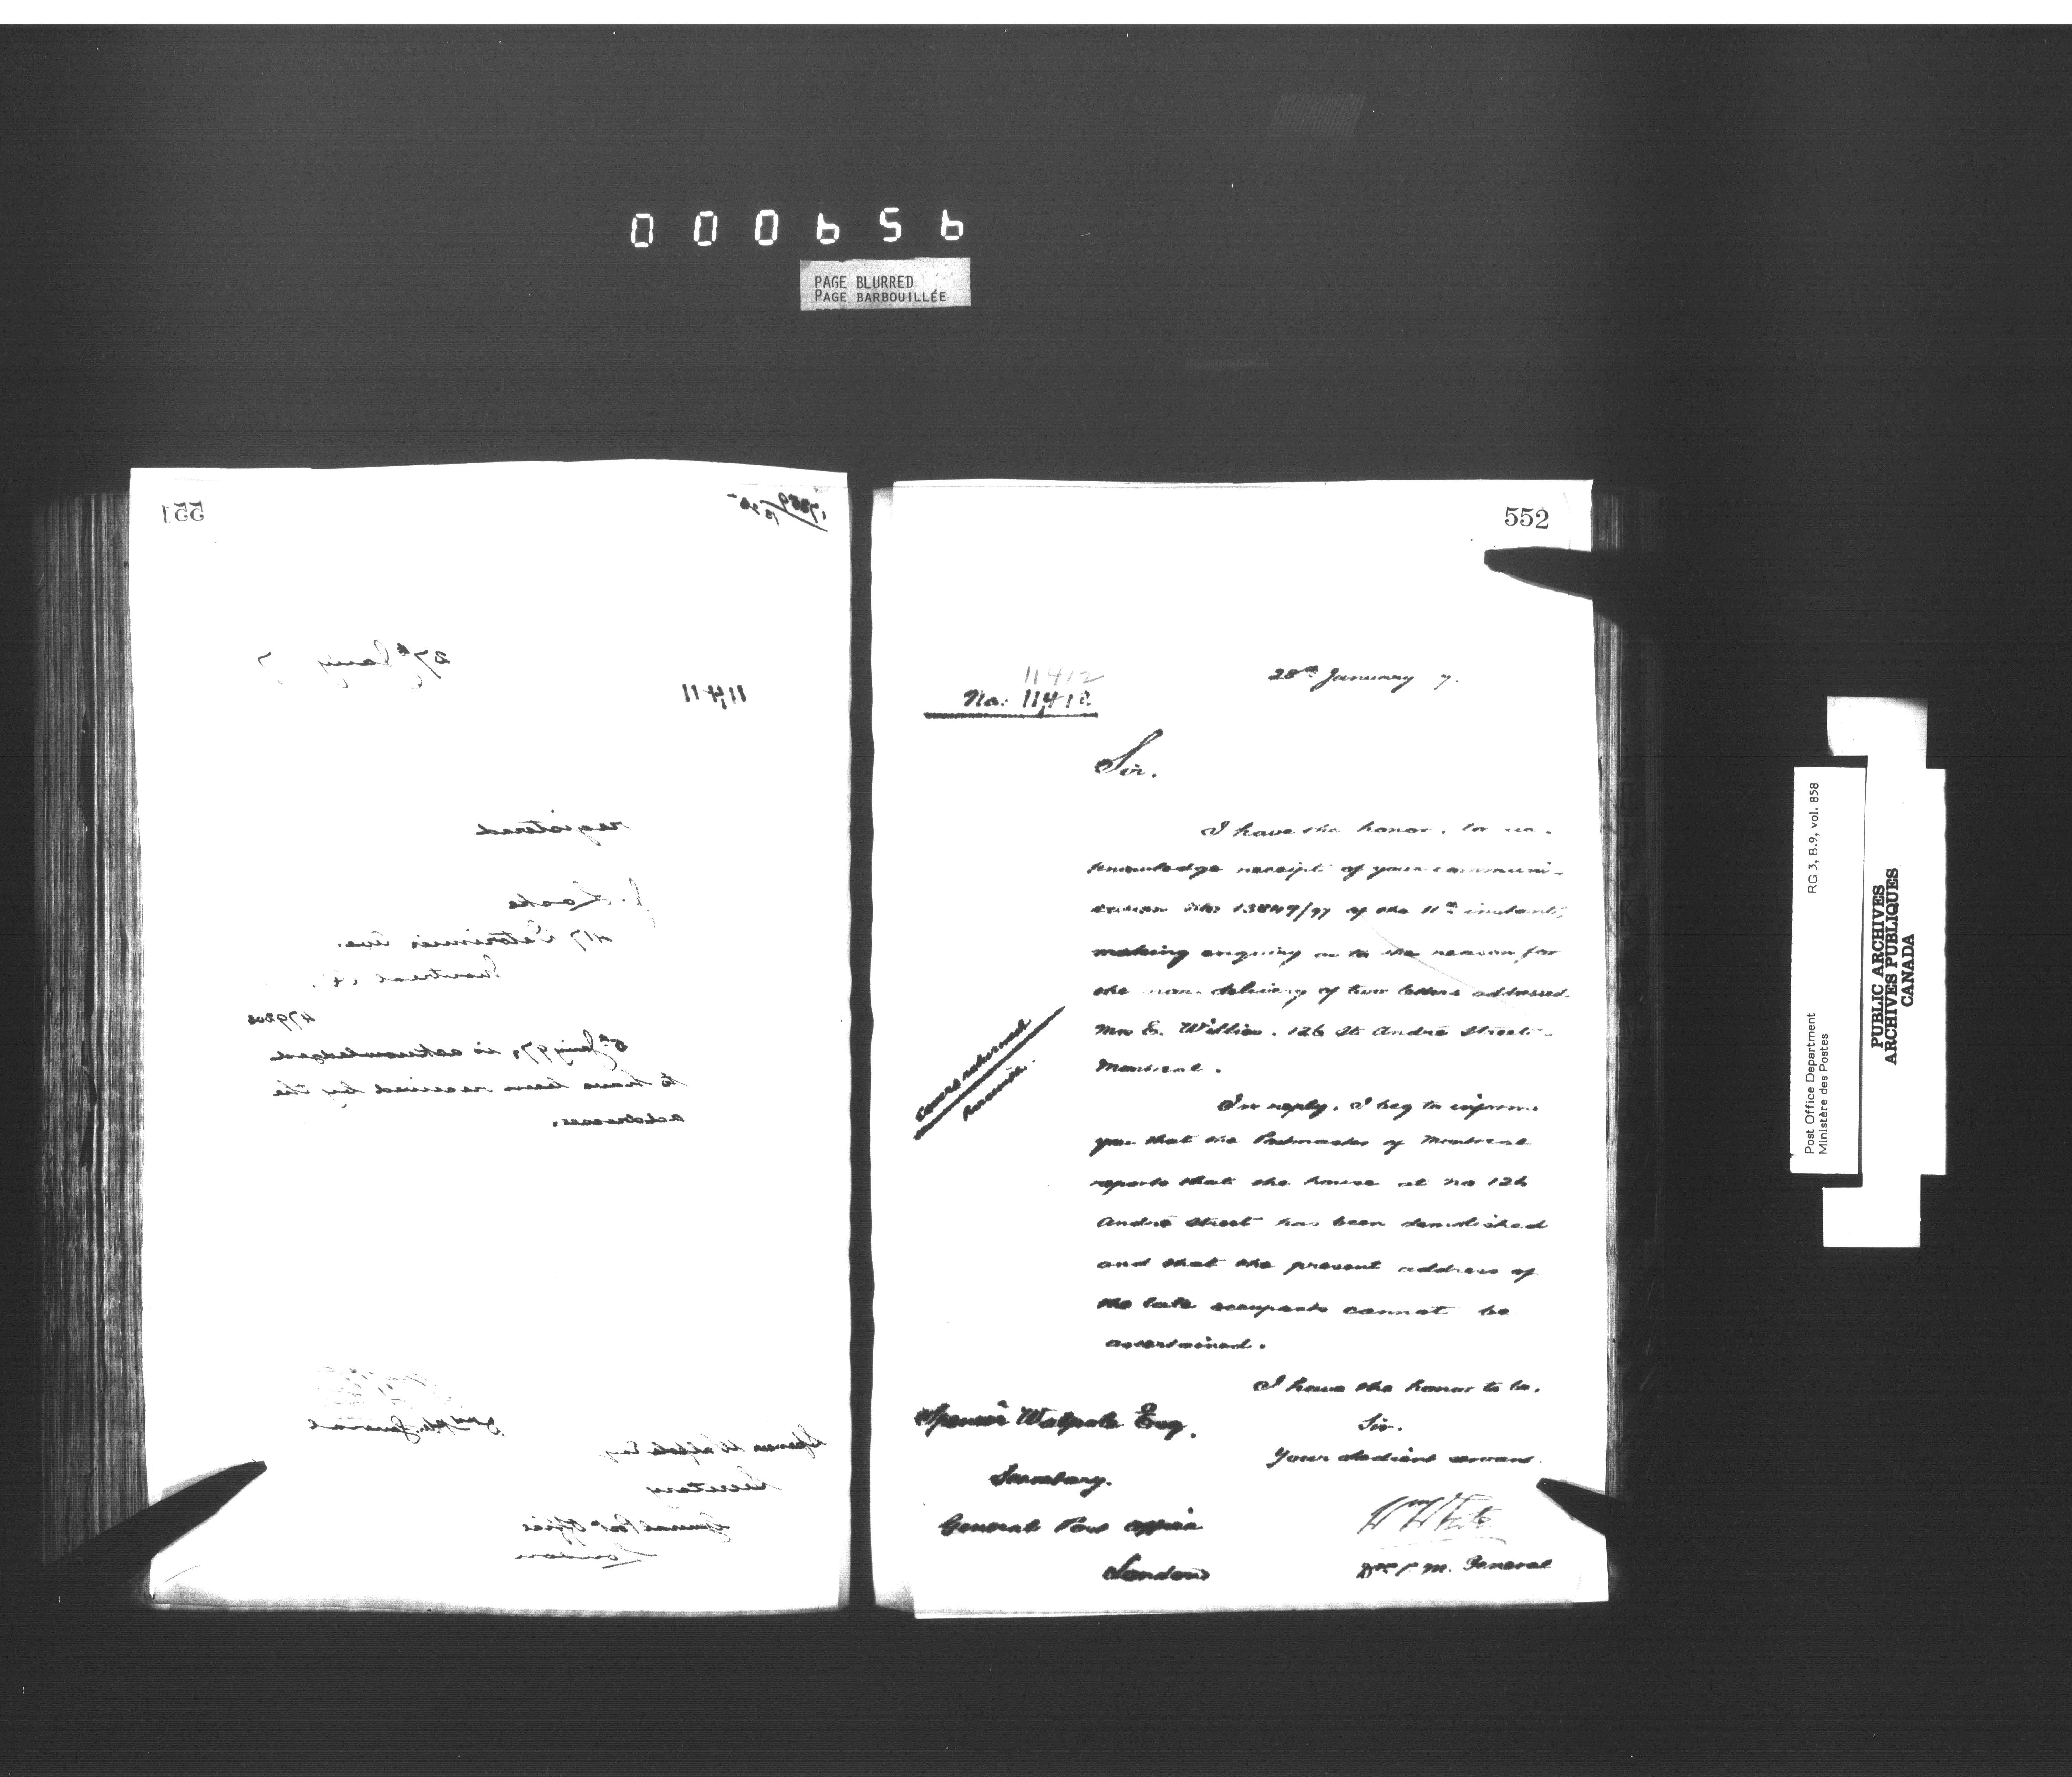 000656
PAGE BLURRED
PAGE BARBOUILLÉE
551
17869/1896
27th Jany 7
11,411
registered
J. Locke
417 Delorimier Ave.
Montreal
479200
5th Jany 97, is acknowledged
to have been received by the
addressee.
General
Spencer Walpole Esq
Secretary
General Post Office
London
552
11412
No: 11,412
28th January 7.
Sir.
I have the honor, to ac-
knowledge receipt of your communi-
cation No: 13849/97 of the 11th instant,
making enquiry as to the reason for
the non-delivery of two letters addressed
Mrs E. Willies. 126 St Andre Street
Montreal.
Covers returned
herewith.
In reply, I beg to inform
you that the Postmaster of Montreal
reports that the house at no 126
Andre Street has been demolished
and that the present address of
the late occupants cannot be
ascertained.
I have the honor to be.
Sir.
Your obedient servant.
Spencer Walpole Esq.
Secretary.
General Post Office
London
Wm White
D. P. M. General
Post Office Department
Ministère des Postes
RG 3, B.9, vol. 858
PUBLIC ARCHIVES
ARCHIVES PUBLIQUES
CANADA